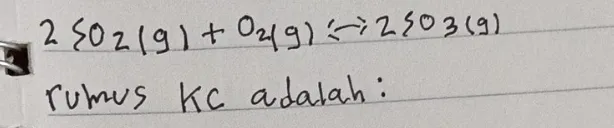 2 SO2(g) + O2(g) <-> 2 SO3(g)
rumus KC adalah :